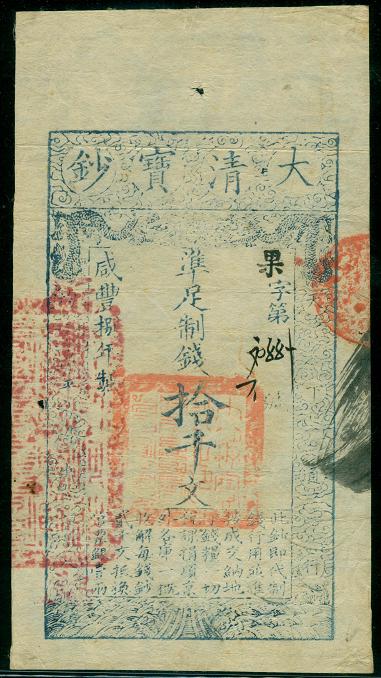 大清寶鈔
果字第
號
準足制錢拾千文
咸豐捌年製
下通行
平
此鈔即代制
錢行用並准
按成交納地
丁錢糧一切
稅課捐項京
外各庫一概
收解每錢鈔
貳千文抵換
官票銀壹兩